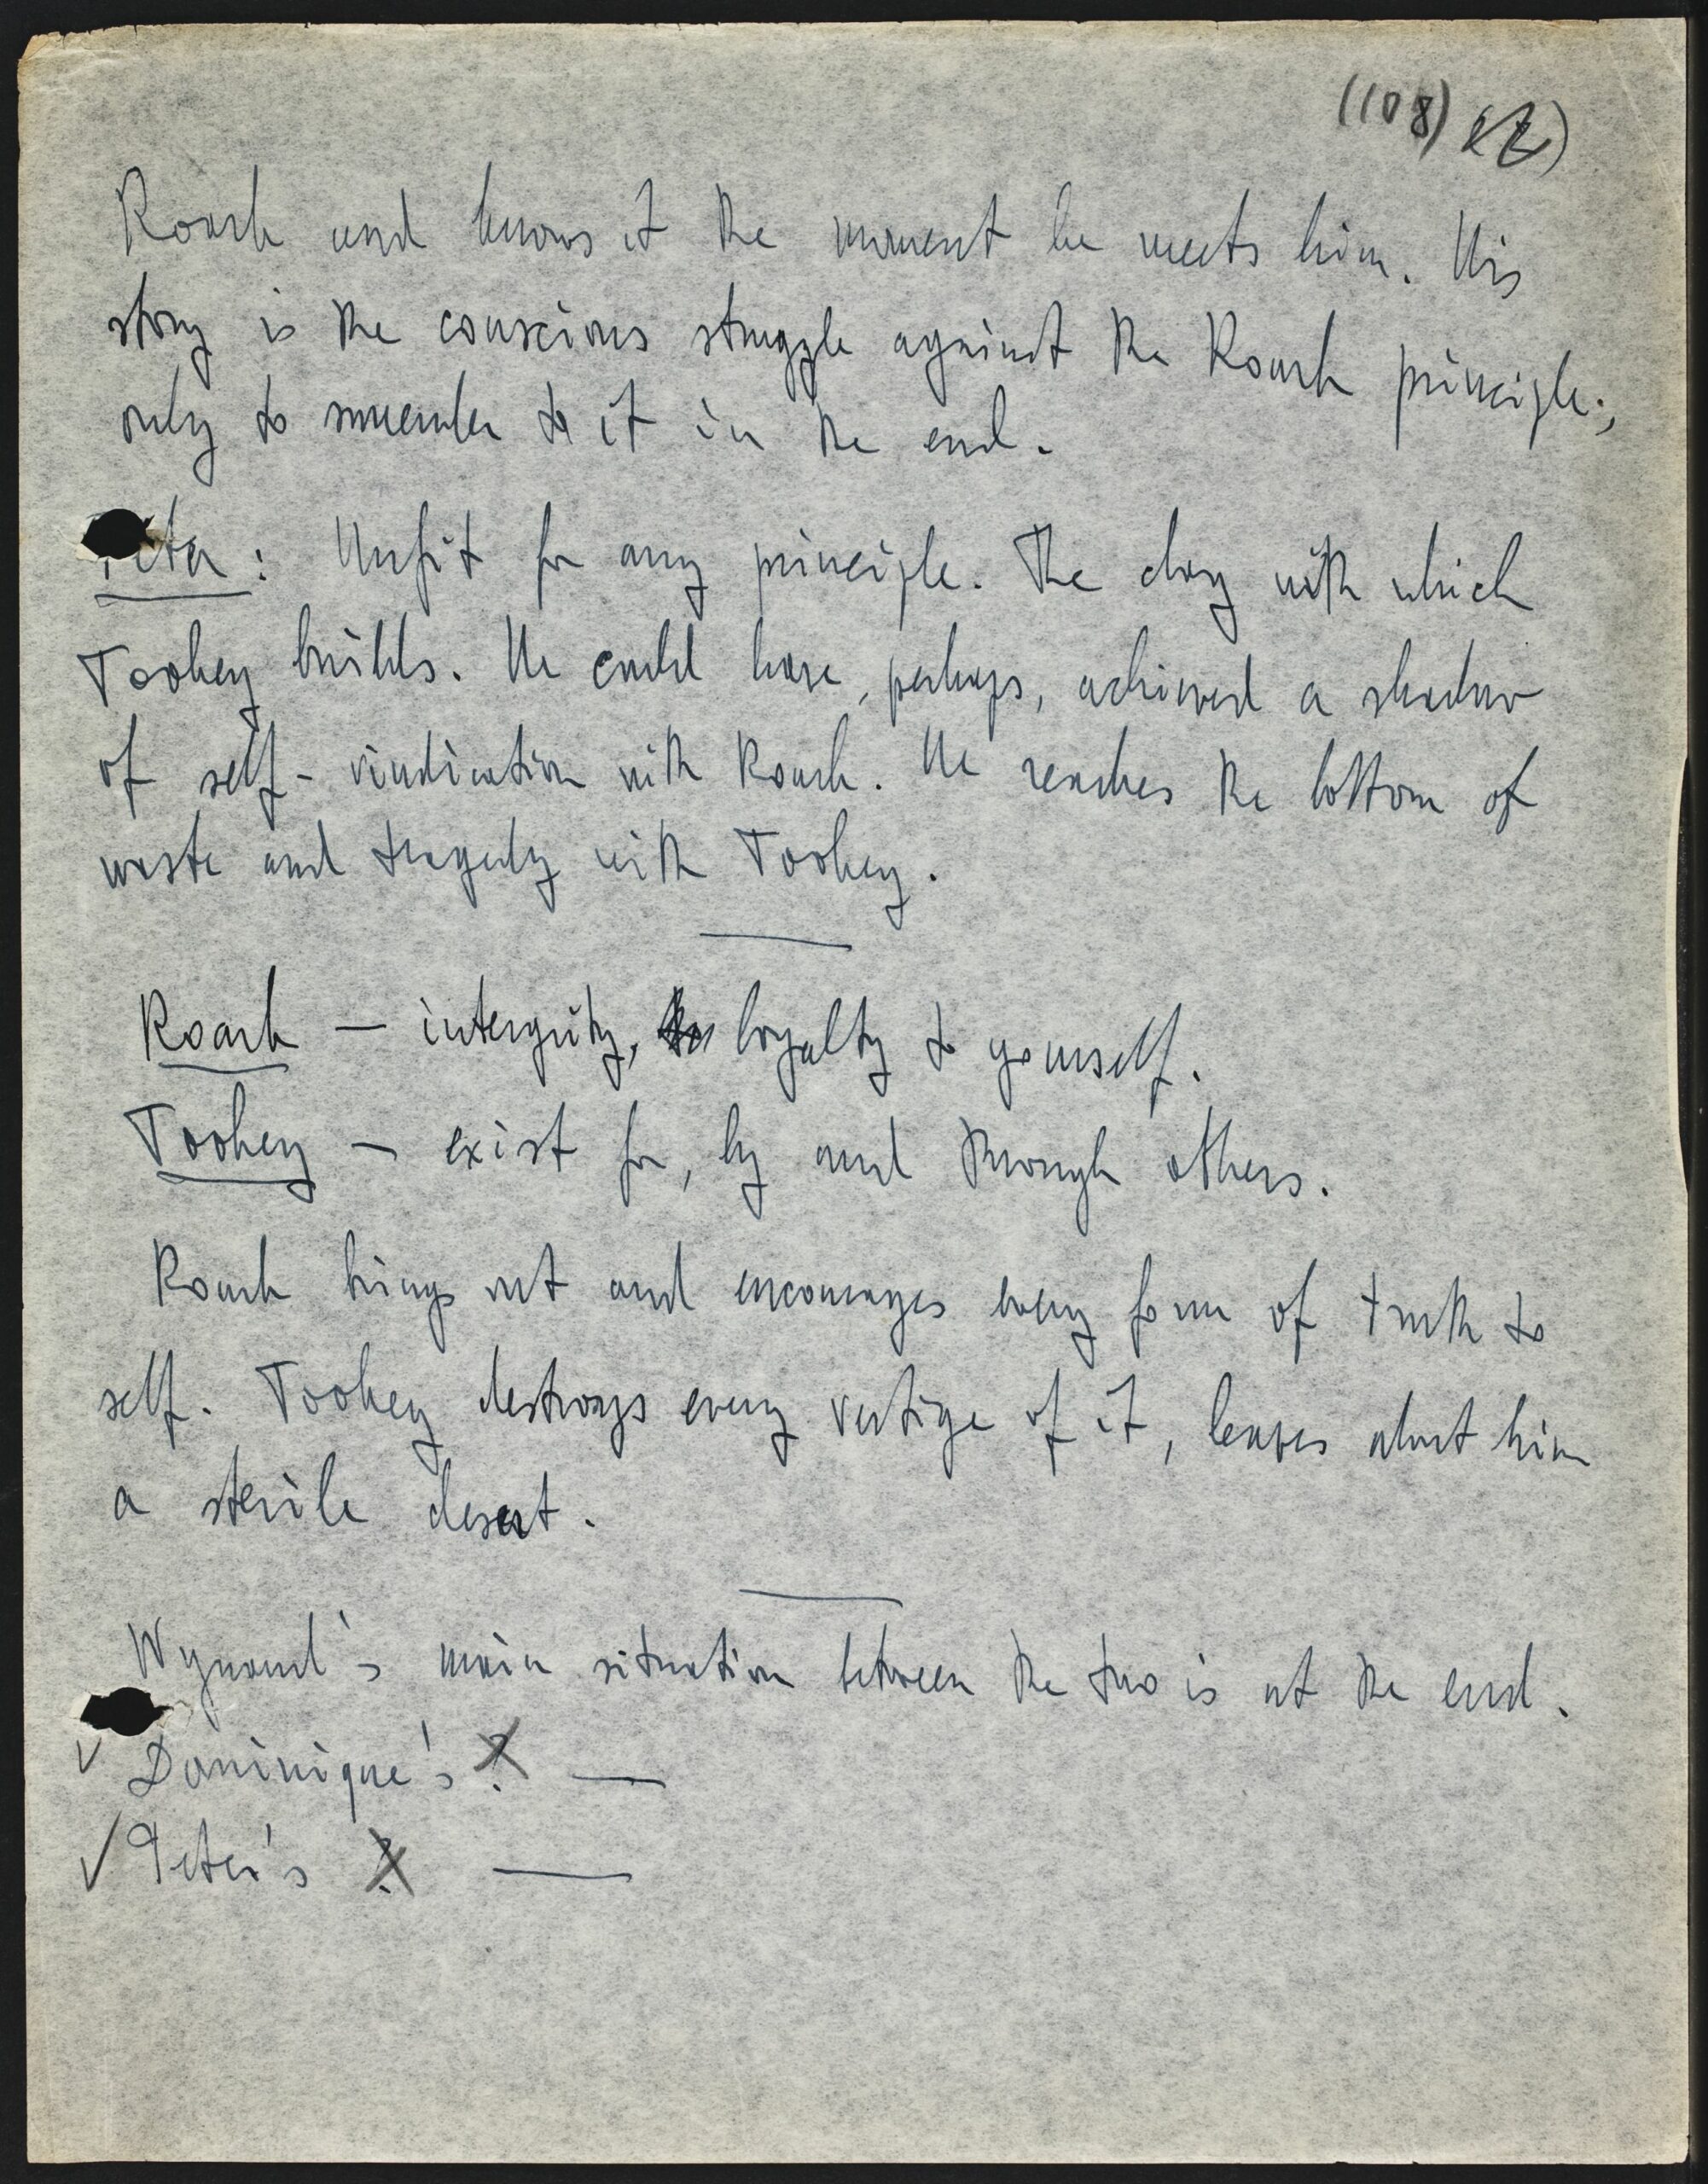 (108)
Roark and knows it the moment he meets him. His
story is the conscious struggle against the Roark principle,
only to surrender to it in the end.
Peter: Unfit for any principle. The clay with which
Toohey builds. He could have, perhaps, achieved a shadow
of self-vindication with Roark. He reaches the bottom of
waste and tragedy with Toohey.
Roark — intergrity, loyalty to yourself.
Toohey — exist for, by and through others.
Roark brings out and encourages every form of truth to
self. Toohey destroys every vestige of it, leaves about him
a sterile desert.
Wynand's main situation between the two is at the end.
✓ Dominique's ? —
✓ Peter's ? —